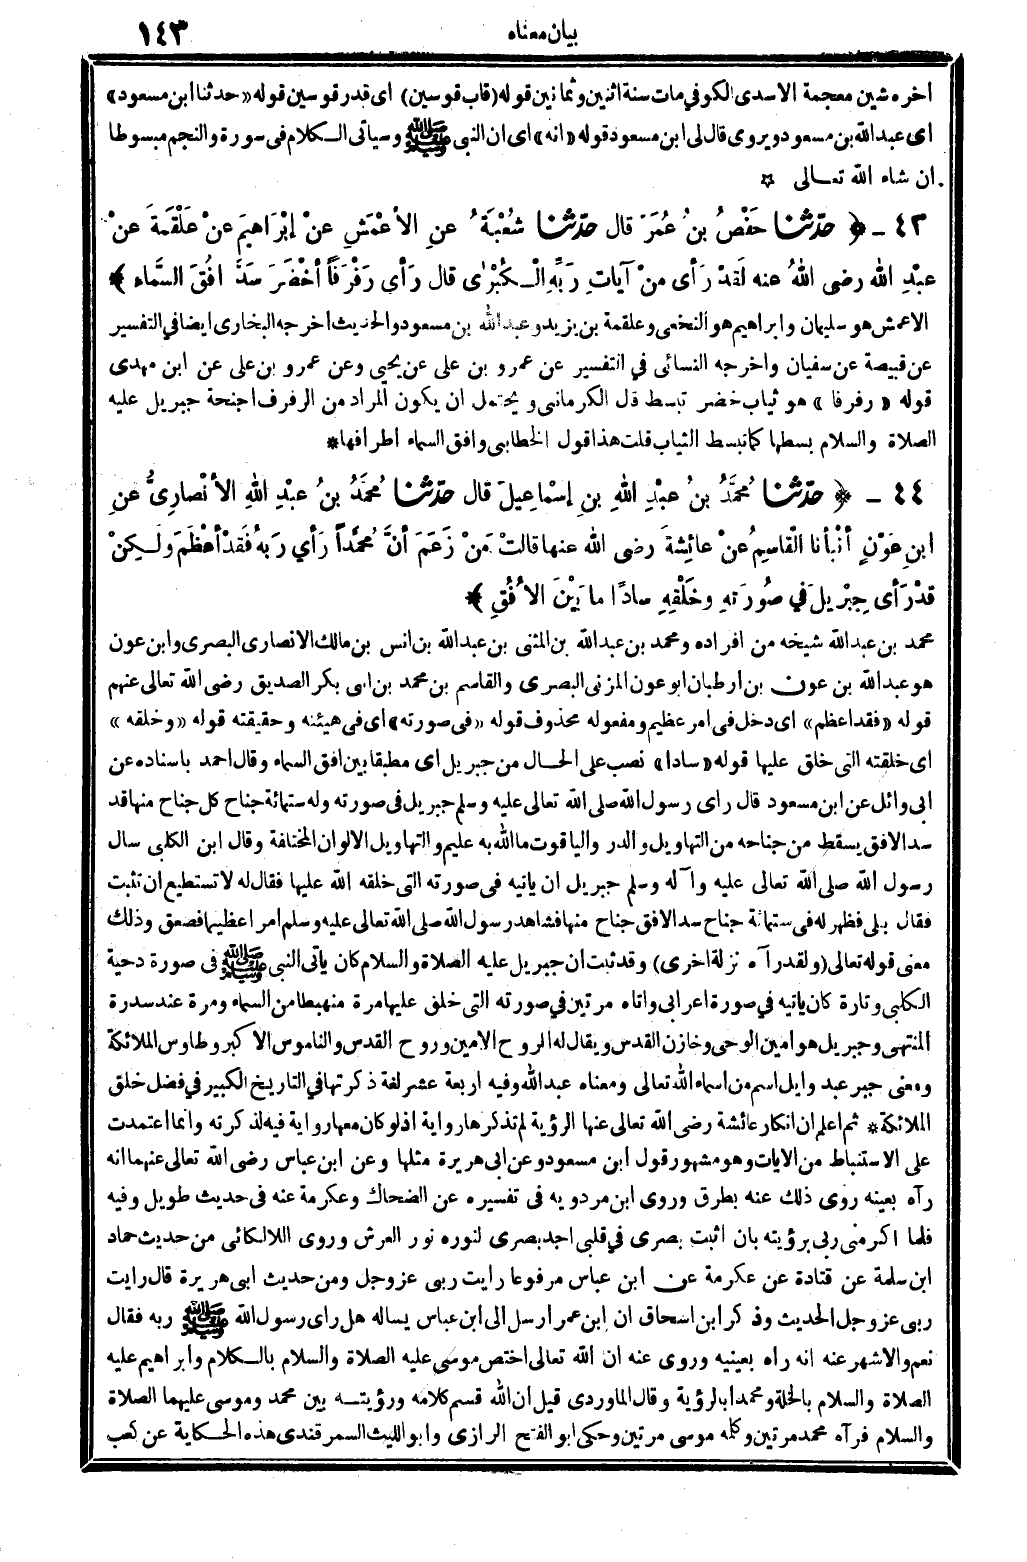 بيان معناه ١٤٣
اخره شين معجمة الاسدى الكوفي مات سنة اثنين وثمانين قوله (قاب قوسين) اى قدر قوسين قوله «حدثنا ابن مسعود»
اى عبدالله بن مسعود ويروى قال لى ابن مسعود قوله «انه» اى ان النبى ﷺ وسياتى الكلام فى سورة والنجم مبسوطا
ان شاء الله تعالى ☆
٤٣ - ﴿ حدّثنا حَفْصُ بنُ عُمَرَ قال حدّثنا شُعْبَةُ عنِ الأعْمَشِ عنْ إبْرَاهِيمَ عنْ عَلْقَمَةَ عنْ
عبْدِ اللهِ رضى اللهُ عنه لَقدْ رَأى منْ آياتِ رَبِّهِ الْكُبْرَى قال رَأي رَفْرَفًا أخْضَرَ سَدَّ افُقَ السَّماء ﴾
الاعمش هو سليمان وابراهيم هو النخعى وعلقمة بن يزيد وعبدالله بن مسعود والحديث اخرجه البخارى ايضا في التفسير
عن قبيصة عن سفيان واخرجه النسائى في التفسير عن عمرو بن على عن يحيى وعن عمرو بن على عن ابن مهدى
قوله «رفرفا» هو ثياب خضر تبسط قال الكرمانى ويحتمل ان يكون المراد من الرفرف اجنحة جبريل عليه
الصلاة والسلام بسطها كما تبسط الثياب قلت هذا قول الخطابى وافق السماء اطرافها *
٤٤ - ﴿ حدّثنا مُحَمَّدُ بنُ عبْدِ اللهِ بنِ إسْماعِيلَ قال حدّثنا مُحَمَّدُ بنُ عبْدِ اللهِ الأنْصارِىُّ عنِ
ابنِ عَوْنٍ أنْبأنا الْقاسِمُ عنْ عائِشَةَ رضى الله عنها قالَتْ منْ زَعَمَ أنَّ مُحَمَّدًا رَأي رَبهُ فَقدْ أعْظَمَ ولَكِنْ
قدْ رَأى جِبْرِيلَ في صُورَتهِ وخَلْقِهِ سادًا ما بَيْنَ الأُفُقِ ﴾
محمد بن عبدالله شيخه من افراده ومحمد بن عبدالله بن المثنى بن عبدالله بن انس بن مالك الانصارى البصرى وابن عون
هو عبدالله بن عون بن ارطبان ابو عون المزنى البصرى والقاسم بن محمد بن ابى بكر الصديق رضى الله تعالى عنهم
قوله «فقد اعظم» اى دخل فى امر عظيم ومفعوله محذوف قوله «فى صورته» اى فى هيئته وحقيقته قوله «وخلقه»
اى خلقته التى خلق عليها قوله «سادا» نصب على الحال من جبريل اى مطبقا بين افق السماء وقال احمد باسناده عن
ابى وائل عن ابن مسعود قال راى رسول الله صلى الله تعالى عليه وسلم جبريل فى صورته وله ستمائة جناح كل جناح منها قد
سد الافق يسقط من جناحه من التهاويل والدر والياقوت ما الله به عليم والتهاويل الالوان المختلفة وقال ابن الكلبى سال
رسول الله صلى الله تعالى عليه وآله وسلم جبريل ان ياتيه فى صورته التى خلقه الله عليها فقال له لا تستطيع ان تثبت
فقال بلى فظهر له فى ستمائة جناح سد الافق جناح منها فشاهد رسول الله صلى الله تعالى عليه وسلم امرا عظيما فصعق وذلك
معنى قوله تعالى (ولقد رآه نزلة اخرى) وقد ثبت ان جبريل عليه الصلاة والسلام كان ياتى النبى ﷺ فى صورة دحية
الكلبى وتارة كان ياتيه في صورة اعرابى واتاه مرتين فى صورته التى خلق عليها مرة منهبطا من السماء ومرة عند سدرة
المنتهى وجبريل هو امين الوحى وخازن القدس ويقال له الروح الامين وروح القدس والناموس الاكبر وطاوس الملائكة
ومعنى جبر عبد وايل اسم من اسماء الله تعالى ومعناه عبدالله وفيه اربعة عشر لغة ذكرتها في التاريخ الكبير في فضل خلق
الملائكة * ثم اعلم ان انكار عائشة رضى الله تعالى عنها الرؤية لم تذكرها رواية اذ لو كان معها رواية فيه لذكرته وانما اعتمدت
على الاستنباط من الايات وهو مشهور قول ابن مسعود وعن ابى هريرة مثلها وعن ابن عباس رضى الله تعالى عنهما انه
رآه بعينه روى ذلك عنه بطرق وروى ابن مردويه فى تفسيره عن الضحاك وعكرمة عنه فى حديث طويل وفيه
فلما اكرمنى ربى برؤيته بان اثبت بصرى في قلبى اجد بصرى لنوره نور العرش وروى اللالكائى من حديث حماد
ابن سلمة عن قتادة عن عكرمة عن ابن عباس مرفوعا رايت ربى عز وجل ومن حديث ابى هريرة قال رايت
ربى عز وجل الحديث وذكر ابن اسحاق ان ابن عمر ارسل الى ابن عباس يساله هل راى رسول الله ﷺ ربه فقال
نعم والاشهر عنه انه راه بعينيه وروى عنه ان الله تعالى اختص موسى عليه الصلاة والسلام بالكلام وابراهيم عليه
الصلاة والسلام بالخلة ومحمدا بالرؤية وقال الماوردى قيل ان الله قسم كلامه ورؤيته بين محمد وموسى عليهما الصلاة
والسلام فرآه محمد مرتين وكلمه موسى مرتين وحكى ابو الفتح الرازى وابو الليث السمرقندى هذه الحكاية عن كعب